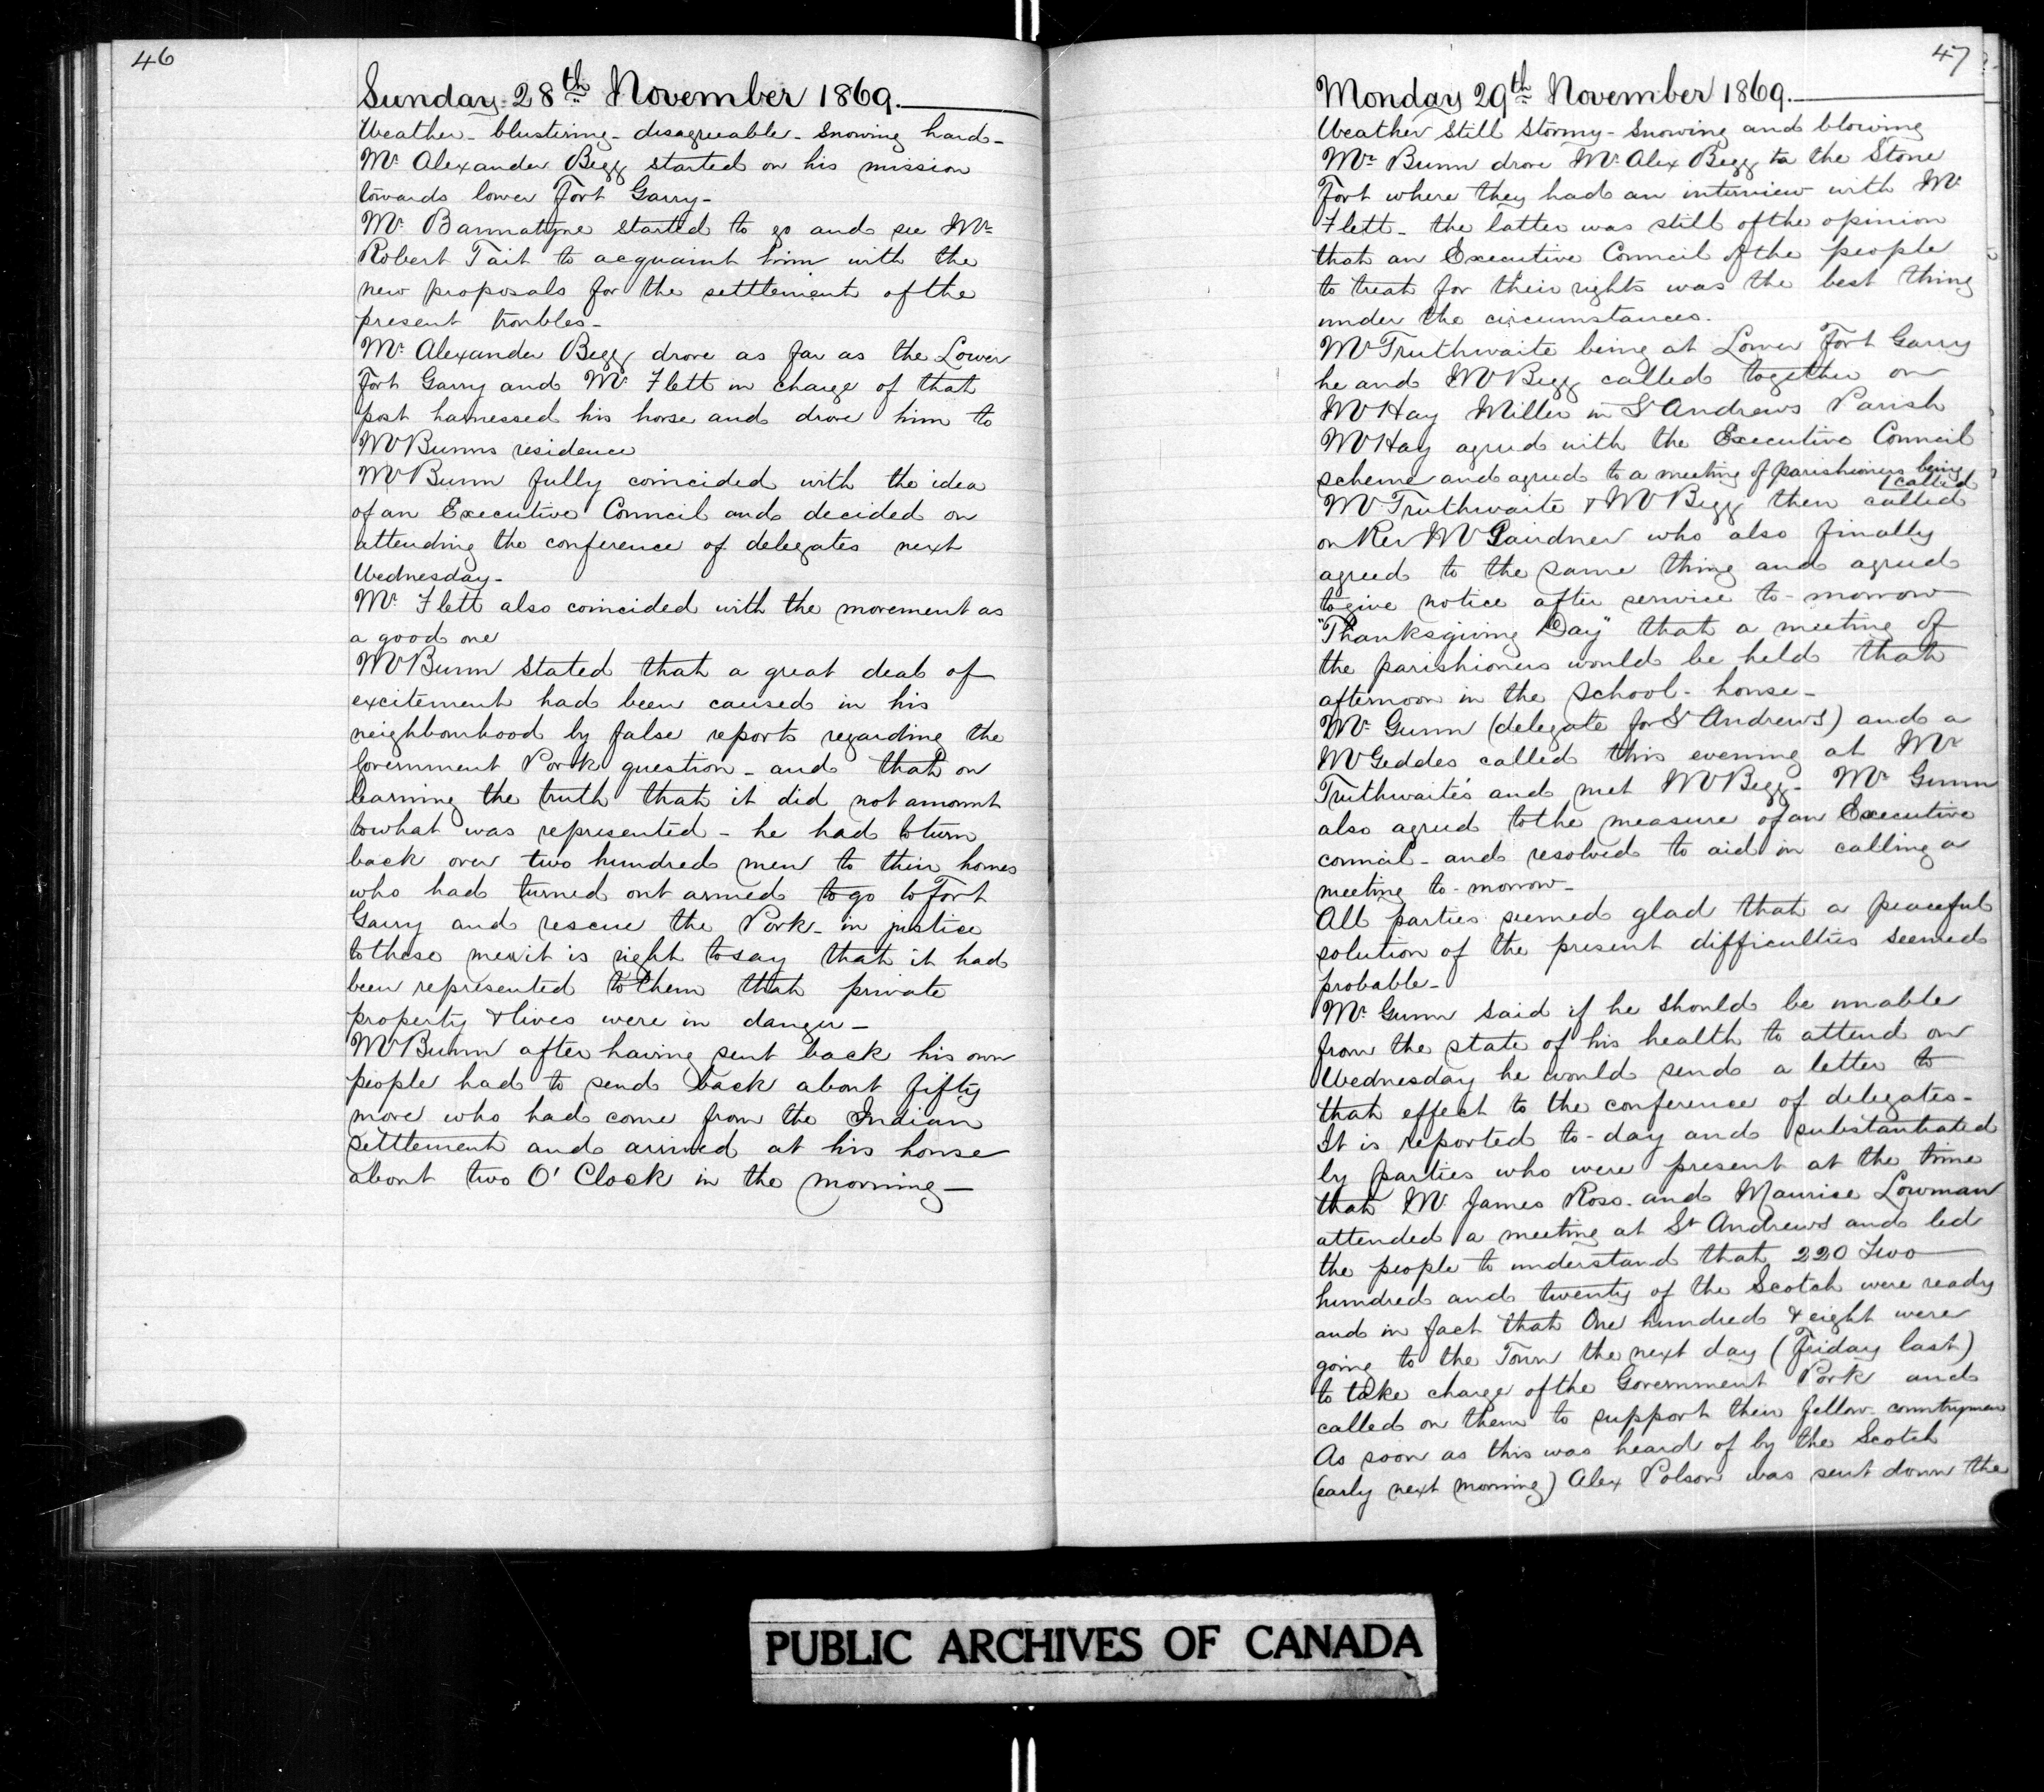 46
Sunday 28th November 1869.
Weather - blustering - disagreeable - snowing hard -
Mr. Alexander Begg started on his mission
towards lower Fort Garry -
Mr. Bannatyne started to go and see Mr
Robert Tait to acquaint him with the
new proposals for the settlement of the
present troubles -
Mr. Alexander Begg drove as far as the Lower
Fort Garry and Mr. Flett in charge of that
post harnessed his horse and drove him to
Mr Bunns residence
Mr Bunn fully coincided with the idea
of an Executive Council and decided on
attending the conference of delegates next
Wednesday -
Mr. Flett also coincided with the movement as
a good one
Mr Bunn stated that a great deal of
excitement had been caused in his
neighbourhood by false reports regarding the
Government Pork question - and that on
learning the truth that it did not amount
to what was represented - he had to turn
back over two hundred men to their homes
who had turned out armed to go to Fort
Garry and rescue the Pork - in justice
to these men it is right to say that it had
been represented to them that private
property & lives were in danger -
Mr Bunn after having sent back his own
people had to send back about fifty
more who had come from the Indian
settlement and arrived at his house
about two O'Clock in the morning -
47
Monday 29th November 1869.
Weather still stormy - snowing and blowing
Mr Bunn drove Mr. Alex Begg to the Stone
Fort where they had an interview with Mr
Flett - the latter was still of the opinion
that an Executive Council of the people
to treat for their rights was the best thing
under the circumstances.
Mr Truthwaite being at Lower Fort Garry
he and Mr Begg called together on
Mr Hay Miller in St Andrews Parish
Mr Hay agreed with the Executive Council
scheme and agreed to a meeting of parishioners being
called
Mr Truthwaite & Mr Begg then called
on Rev Mr Gairdner who also finally
agreed to the same thing and agreed
to give notice after service to-morrow
"Thanksgiving Day" that a meeting of
the parishioners would be held that
afternoon in the school-house -
Mr. Gunn (delegate for St Andrews) and a
Mr Geddes called this evening at Mr
Truthwaite's and met Mr Begg - Mr Gunn
also agreed to the measure of an Executive
council - and resolved to aid in calling a
meeting to-morrow -
All parties seemed glad that a peaceful
solution of the present difficulties seemed
probable -
Mr. Gunn said if he should be unable
from the state of his health to attend on
Wednesday he would send a letter to
that effect to the conference of delegates -
It is reported to-day and substantiated
by parties who were present at the time
that Mr. James Ross and Maurice Lowman
attended a meeting at St Andrews and led
the people to understand that 220 Two
hundred and twenty of the Scotch were ready
and in fact that One hundred & eight were
going to the Town the next day (Friday last)
to take charge of the Government Pork and
called on them to support their fellow-countrymen
As soon as this was heard of by the Scotch
(early next morning) Alex Polson was sent down the
PUBLIC ARCHIVES OF CANADA